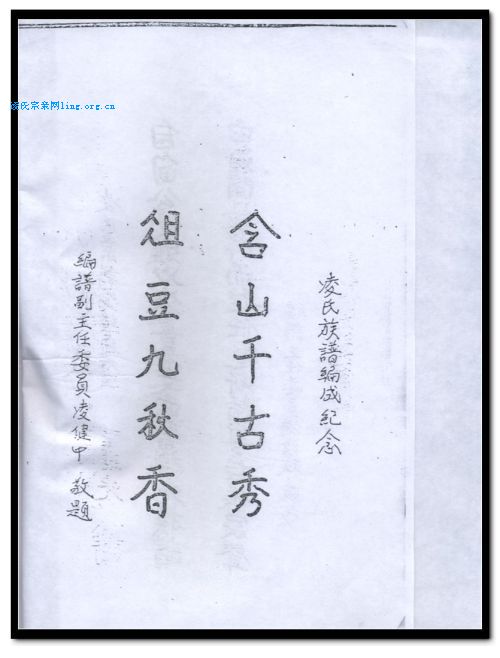 凌氏族譜編成紀念
含山千古秀
俎豆九秋香
編譜副主任委員凌健中 敬題
凌氏宗亲网ling.org.cn